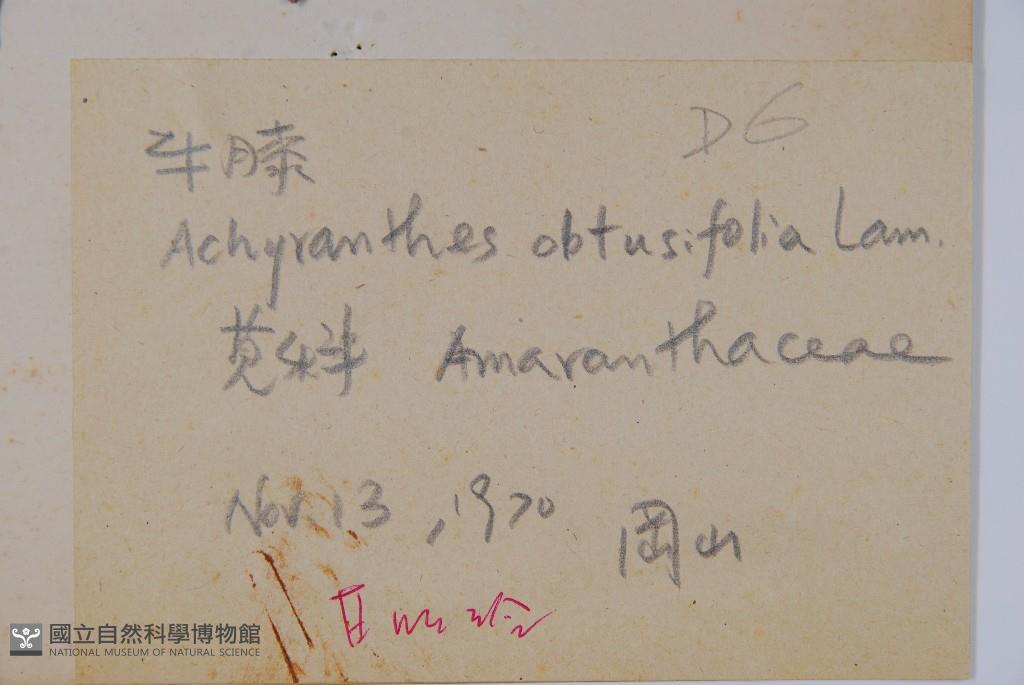 DG
牛膝
Achyranthes obtusifolia Lam.
莧科 Amaranthaceae
Nov. 13, 1970 岡山
國立自然科學博物館
NATIONAL MUSEUM OF NATURAL SCIENCE